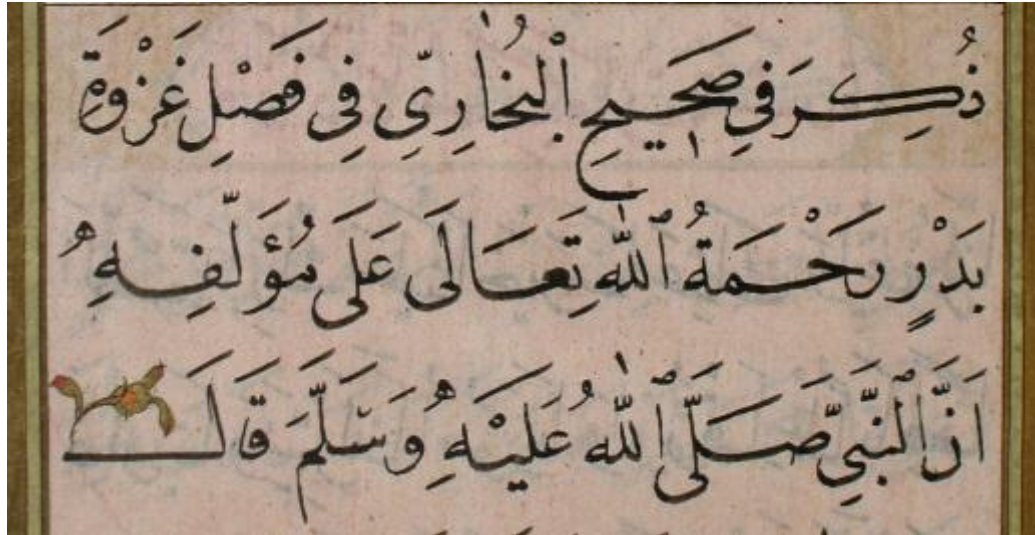 ذُكِرَ فِي صَحِيحِ الْبُخَارِيِّ فِي فَصْلِ غَزْوَةِ
بَدْرٍ رَحْمَةُ اللّٰهِ تَعَالَى عَلَى مُؤَلِّفِهِ
اَنَّ النَّبِيَّ صَلَّى اللّٰهُ عَلَيْهِ وَسَلَّمَ قَالَ